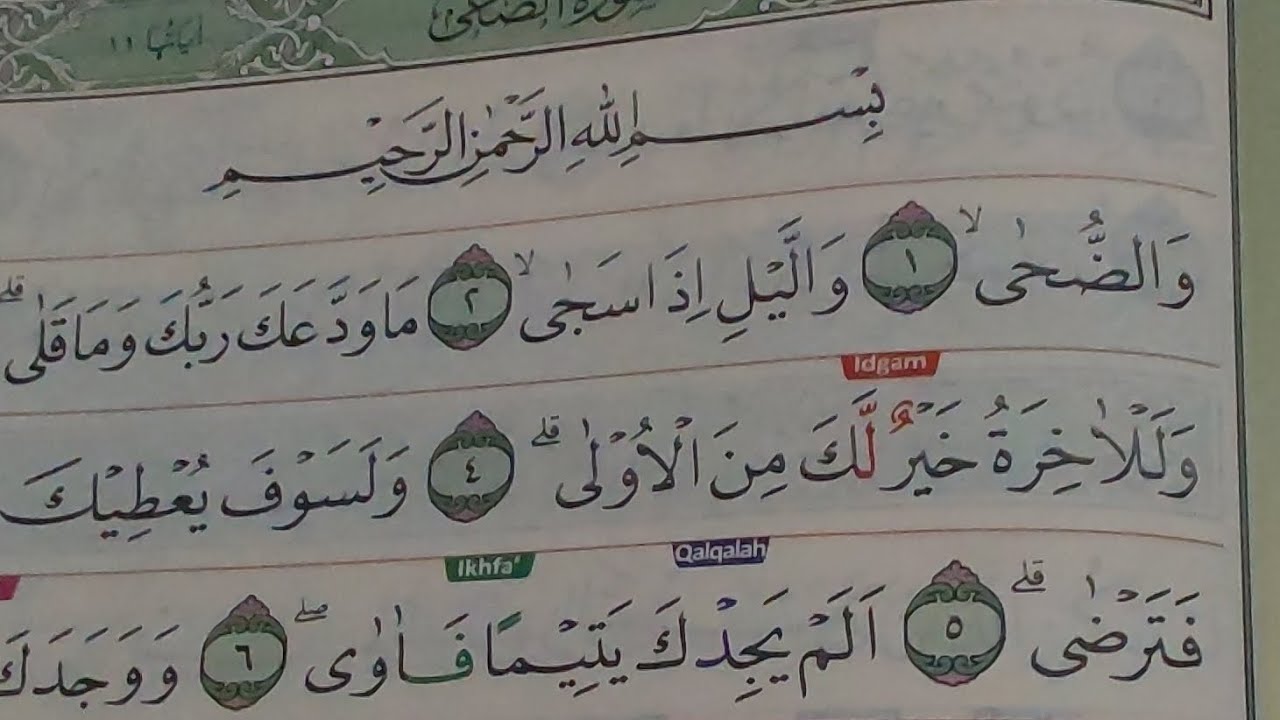 سورة الضحى اياتها ١١
بِسْمِ اللهِ الرَّحْمٰنِ الرَّحِيْمِ
وَالضُّحٰىۙ ١ وَالَّيْلِ اِذَا سَجٰىۙ ٢ مَا وَدَّعَكَ رَبُّكَ وَمَا قَلٰىۗ
Idgam
وَلَلْاٰخِرَةُ خَيْرٌ لَّكَ مِنَ الْاُوْلٰىۗ ٤ وَلَسَوْفَ يُعْطِيْكَ
Qalqalah Ikhfa'
فَتَرْضٰىۗ ٥ اَلَمْ يَجِدْكَ يَتِيْمًا فَاٰوٰىۖ ٦ وَوَجَدَكَ